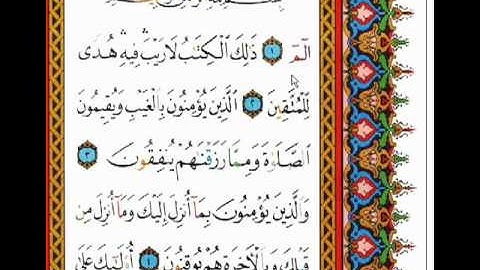 الٓمٓ ١ ذَٰلِكَ ٱلْكِتَٰبُ لَا رَيْبَ ۛ فِيهِ ۛ هُدًى
لِّلْمُتَّقِينَ ٢ ٱلَّذِينَ يُؤْمِنُونَ بِٱلْغَيْبِ وَيُقِيمُونَ
ٱلصَّلَوٰةَ وَمِمَّا رَزَقْنَٰهُمْ يُنفِقُونَ ٣
وَٱلَّذِينَ يُؤْمِنُونَ بِمَآ أُنزِلَ إِلَيْكَ وَمَآ أُنزِلَ مِن
قَبْلِكَ وَبِٱلْءَاخِرَةِ هُمْ يُوقِنُونَ ٤ أُو۟لَٰٓئِكَ عَلَىٰ